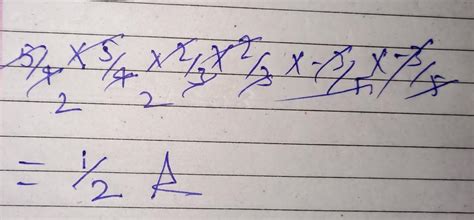 5/4 × 5/4 × 2/3 × 2/3 × -3/5 × -3/5
2 2
= 1/2 A